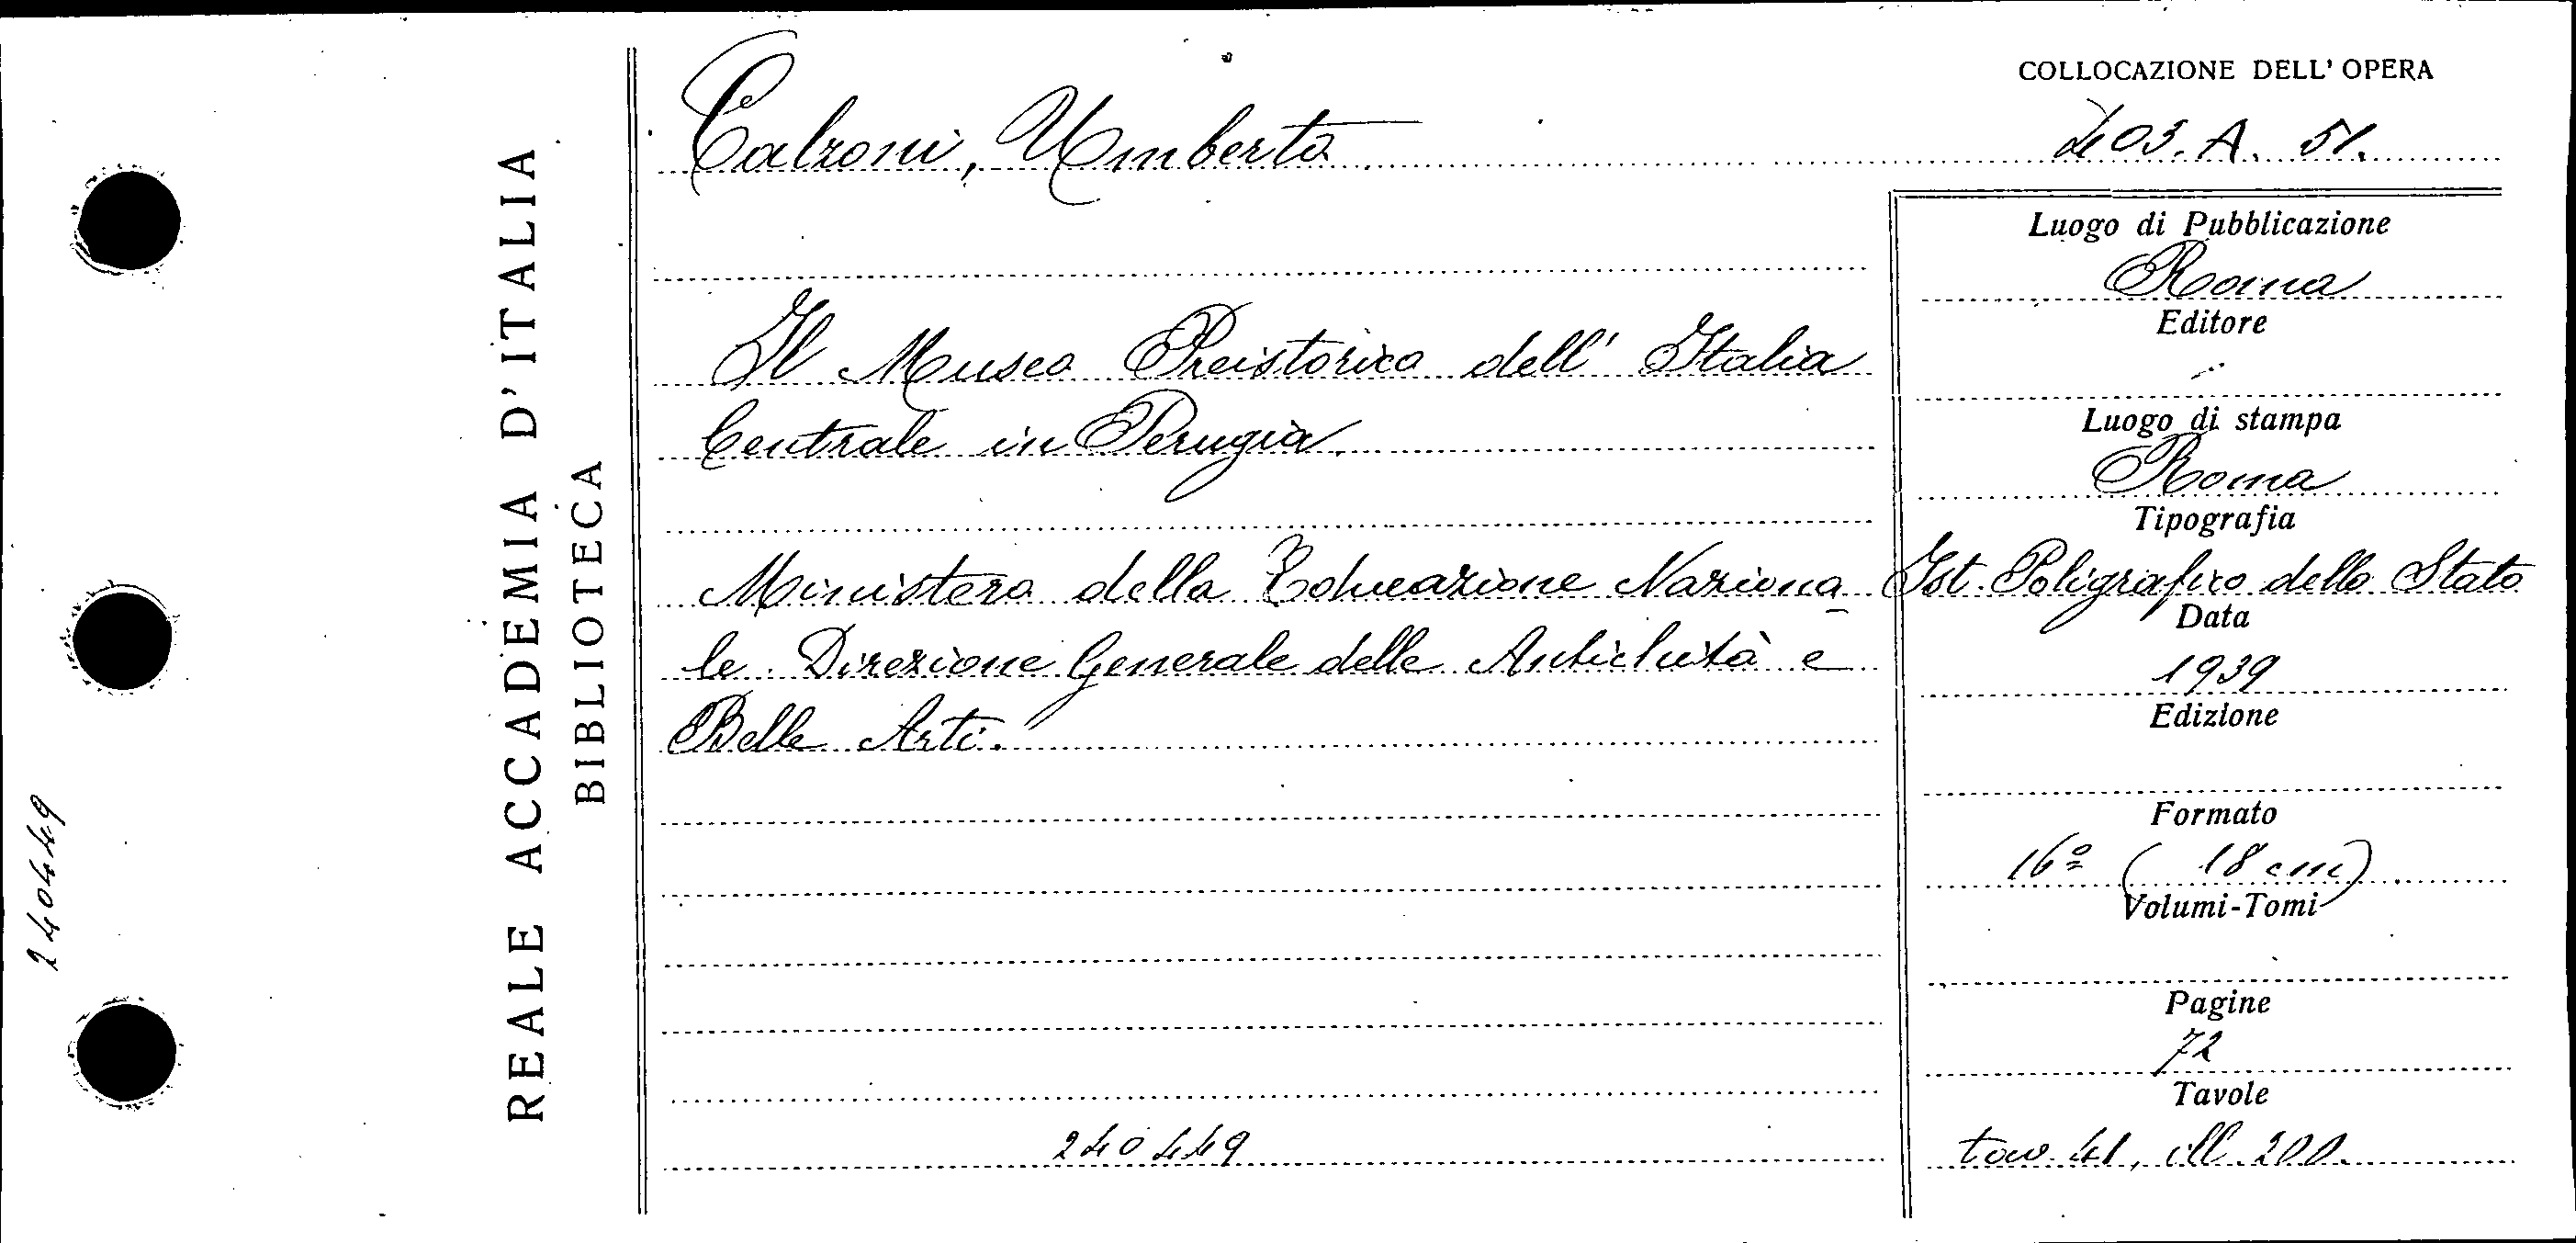 240449
REALE ACCADEMIA D'ITALIA
BIBLIOTECA
Calzoni, Umberto
Il Museo Preistorico dell' Italia
Centrale in Perugia.
Ministero della Educazione Naziona-
le. Direzione Generale delle Antichità e
Belle Arti.
240449
COLLOCAZIONE DELL' OPERA
403. A. 51.
Luogo di Pubblicazione
Roma
Editore
Luogo di stampa
Roma
Tipografia
Ist. Poligrafico dello Stato
Data
1939
Edizione
Formato
16º (18 cm)
Volumi-Tomi
Pagine
72
Tavole
tav. 41, ill. 200.